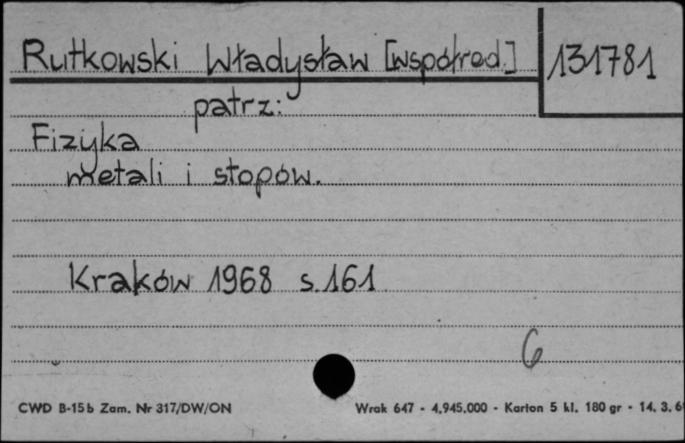 Rutkowski Władysław [współred.] 131781
patrz:
Fizyka
metali i stopów.
Kraków 1968 s.161
6
CWD B-15b Zam. Nr 317/DW/ON Wrak 647 - 4.945.000 - Karton 5 kl. 180 gr - 14. 3. 6